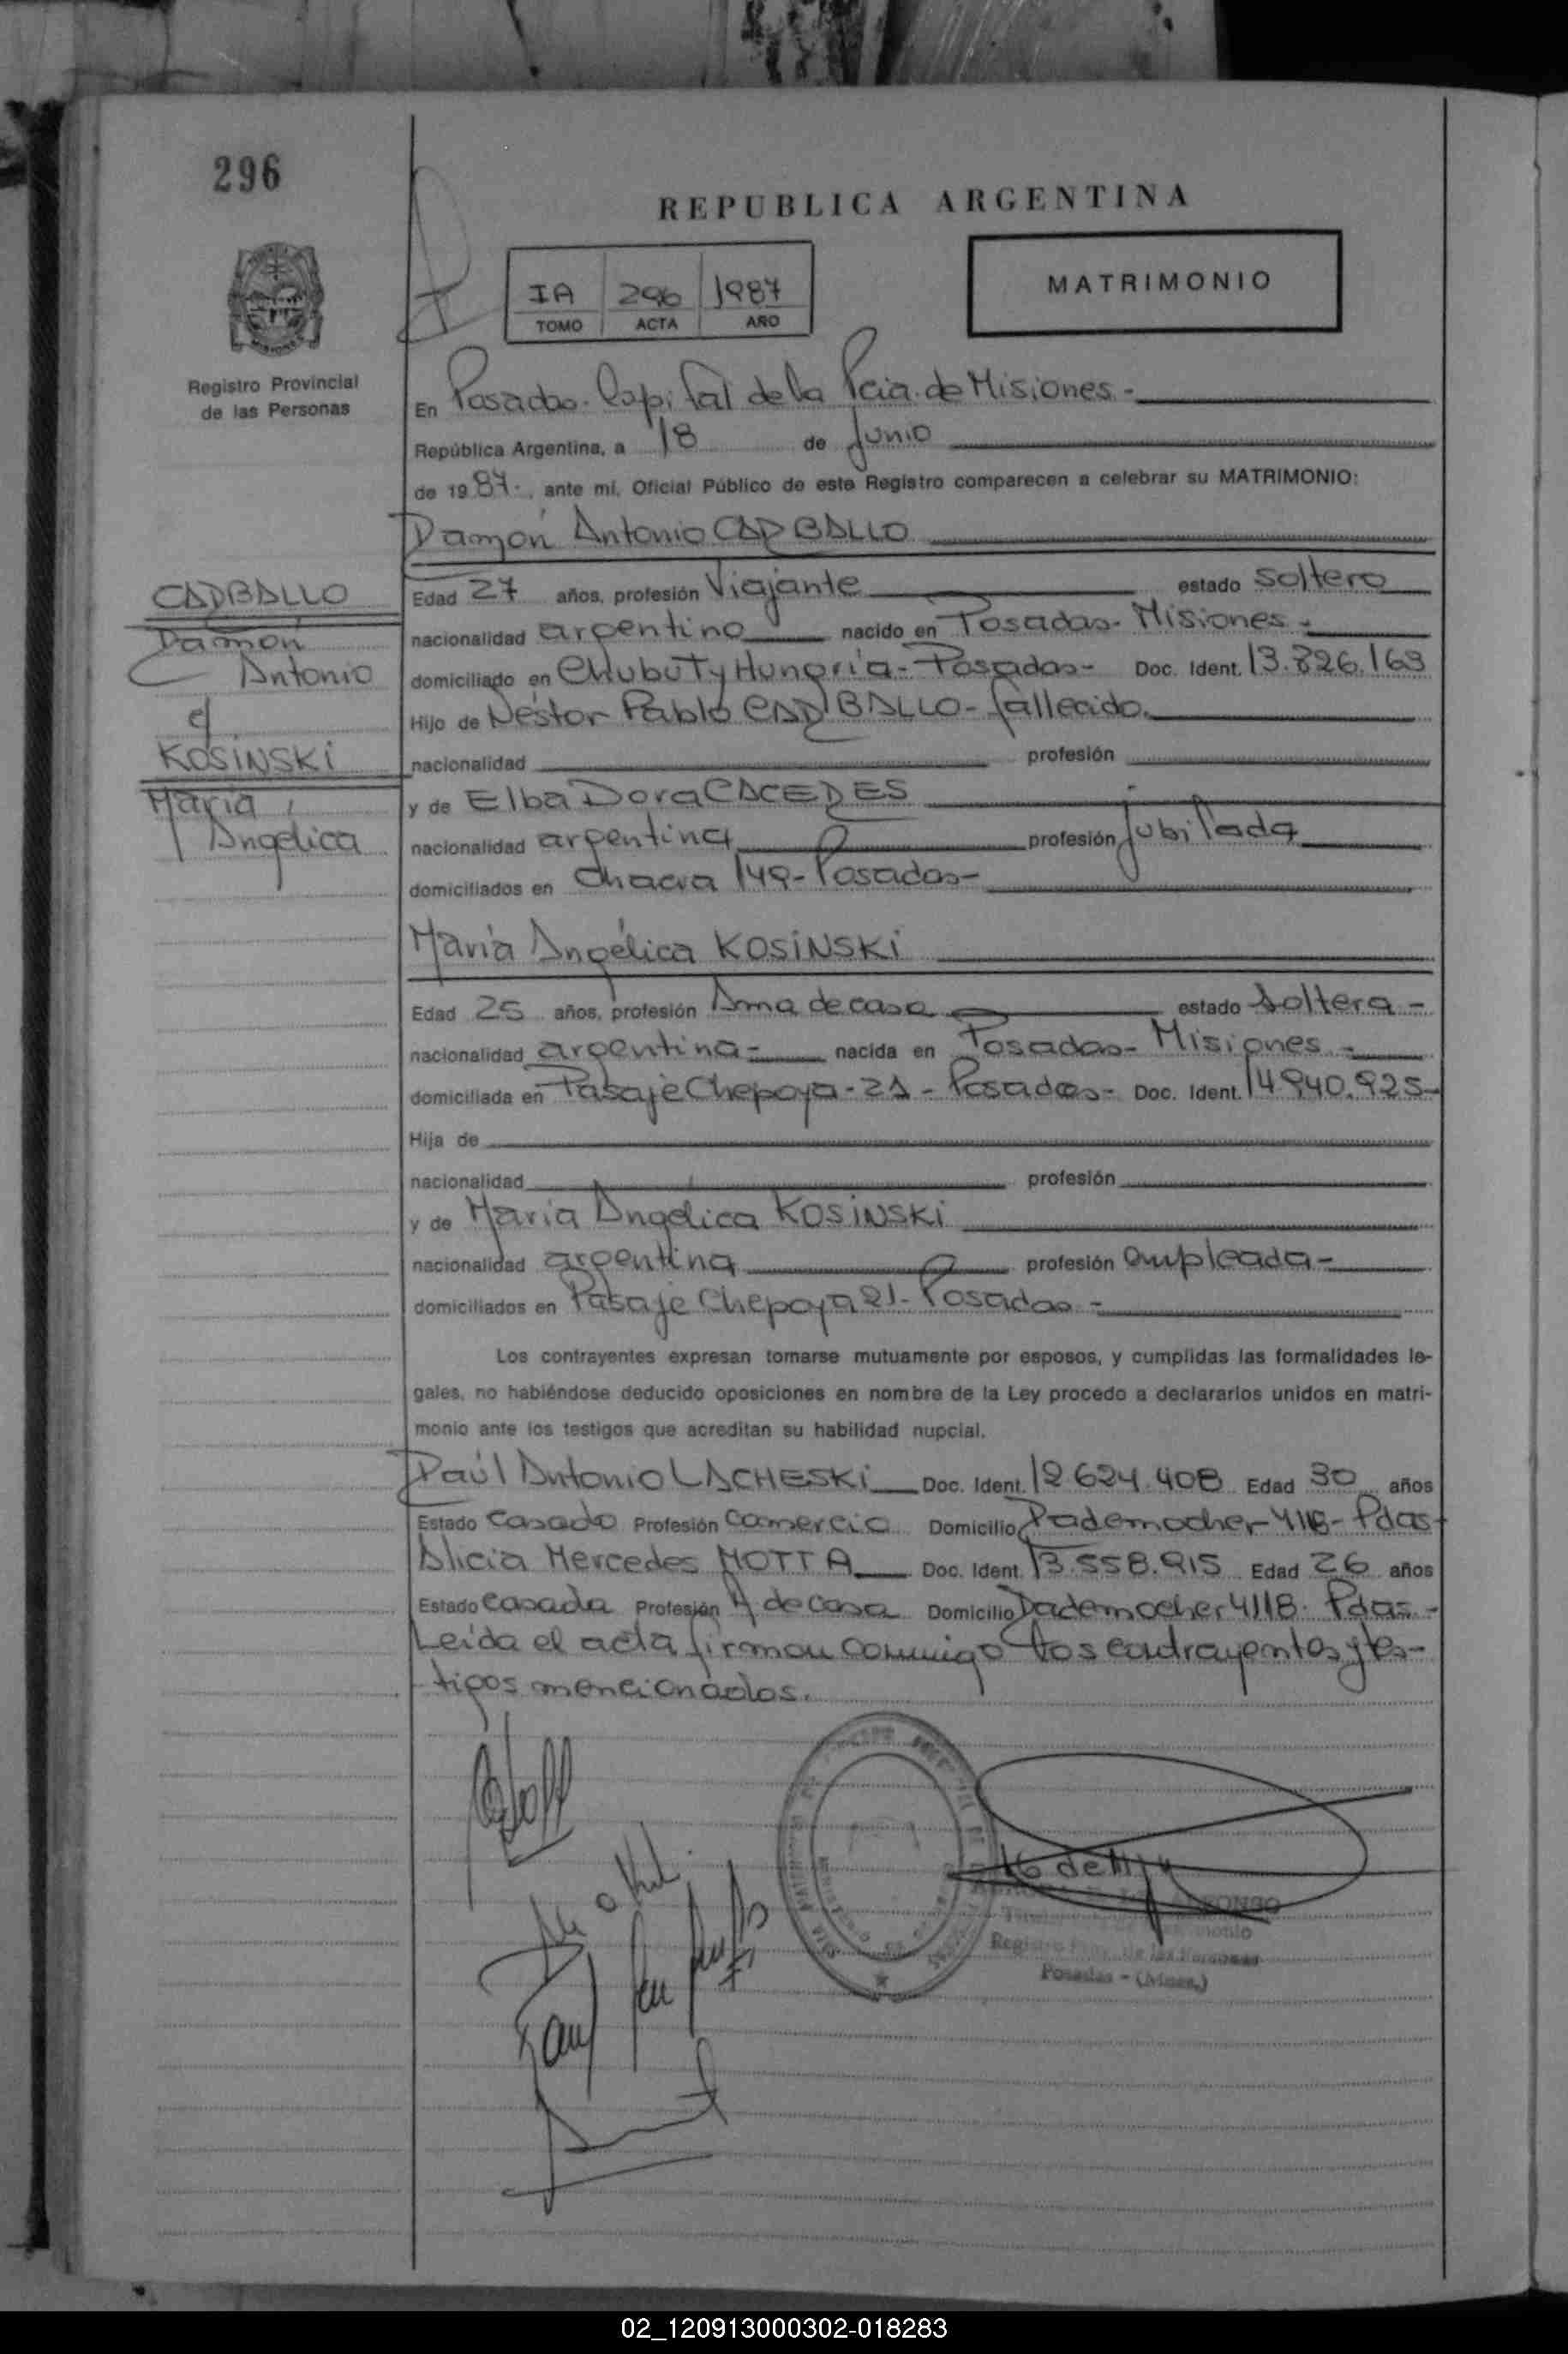 296
REPUBLICA ARGENTINA
IA 296 1987
TOMO ACTA AÑO
MATRIMONIO
Registro Provincial
de las Personas
En Posadas. Capital de la Pcia. de Misiones.-
República Argentina, a 18 de Junio
de 1987., ante mí, Oficial Público de este Registro comparecen a celebrar su MATRIMONIO:
Ramón Antonio CARBALLO
CARBALLO
Ramón
Antonio
c/
KOSINSKI
María
Angélica
Edad 27 años, profesión Viajante estado soltero
nacionalidad argentino nacido en Posadas- Misiones.-
domiciliado en Chubut y Hungría- Posadas- Doc. Ident. 13.826.163
Hijo de Néstor Pablo CARBALLO- fallecido.
nacionalidad profesión
y de Elba Dora CACERES
nacionalidad argentina profesión jubilada
domiciliados en Chacra 149- Posadas-
María Angélica KOSINSKI
Edad 25 años, profesión Ama de casa estado soltera-
nacionalidad argentina- nacida en Posadas- Misiones.-
domiciliada en Pasaje Chepoya-21- Posadas- Doc. Ident. 14.940.925-
Hija de
nacionalidad profesión
y de María Angélica KOSINSKI
nacionalidad argentina profesión empleada-
domiciliados en Pasaje Chepoya 21- Posadas.-
Los contrayentes expresan tomarse mutuamente por esposos, y cumplidas las formalidades le-
gales, no habiéndose deducido oposiciones en nombre de la Ley procedo a declararlos unidos en matri-
monio ante los testigos que acreditan su habilidad nupcial.
Raúl Antonio LACHESKI Doc. Ident. 12.624.408 Edad 30 años
Estado casado Profesión comercio Domicilio Rademacher-4118- Pdas-
Alicia Mercedes MOTTA Doc. Ident. 13.558.915 Edad 26 años
Estado casada Profesión A. de casa Domicilio Rademacher 4118. Pdas.-
Leída el acta firman conmigo los contrayentes y tes-
tigos mencionados.
Registro Prov. de las Personas
Posadas - (Mnes.)
02_120913000302-018283